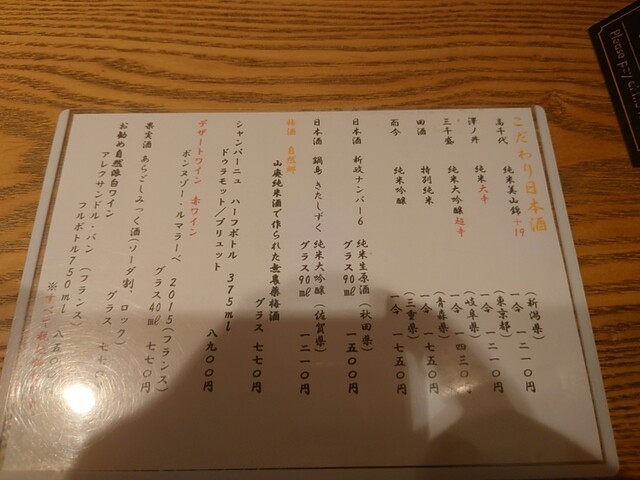 こだわり日本酒
高千代　純米美山錦+19　（新潟県）
一合　一二一〇円
澤ノ井　純米大辛　（東京都）
一合　一二一〇円
三千盛　純米大吟醸超辛　（岐阜県）
一合　一四三〇円
田酒　特別純米　（青森県）
一合　一七五〇円
而今　純米吟醸　（三重県）
一合　一七五〇円
日本酒　新政ナンバー6　純米生原酒（秋田県）
グラス90ml　一五〇〇円
日本酒　鍋島　きたしずく　純米大吟醸（佐賀県）
グラス90ml　一二一〇円
梅酒　自然郷
山廃純米酒で作られた無農薬梅酒
グラス　七七〇円
シャンパーニュ　ハーフボトル　375ml
ドゥラモット／ブリュット　八九〇〇円
デザートワイン　赤ワイン
ボンヌゾー・ルマラーベ　2015（フランス）
グラス40ml　七七〇円
果実酒　あらごしみっく酒（ソーダ割・ロック）
グラス　七七〇円
お勧め自然派白ワイン
アレクサンドル・バン　（フランス）
フルボトル750ml　八五
※すべて税
Please